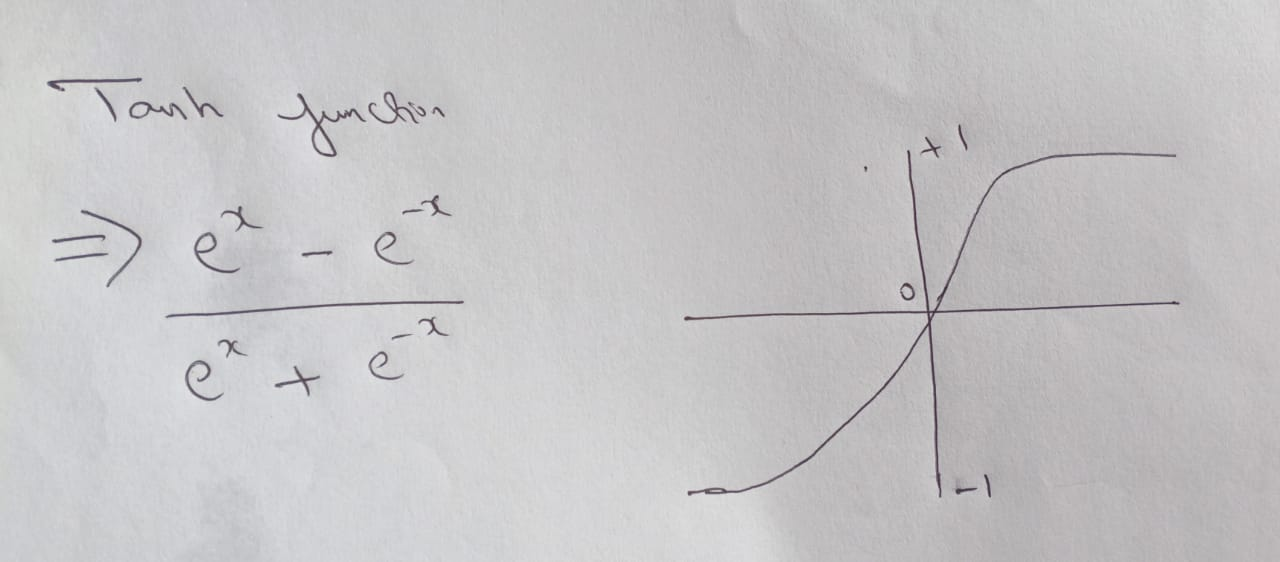 Tanh function
⇒ e^x - e^-x
e^x + e^-x
+1
0
-1